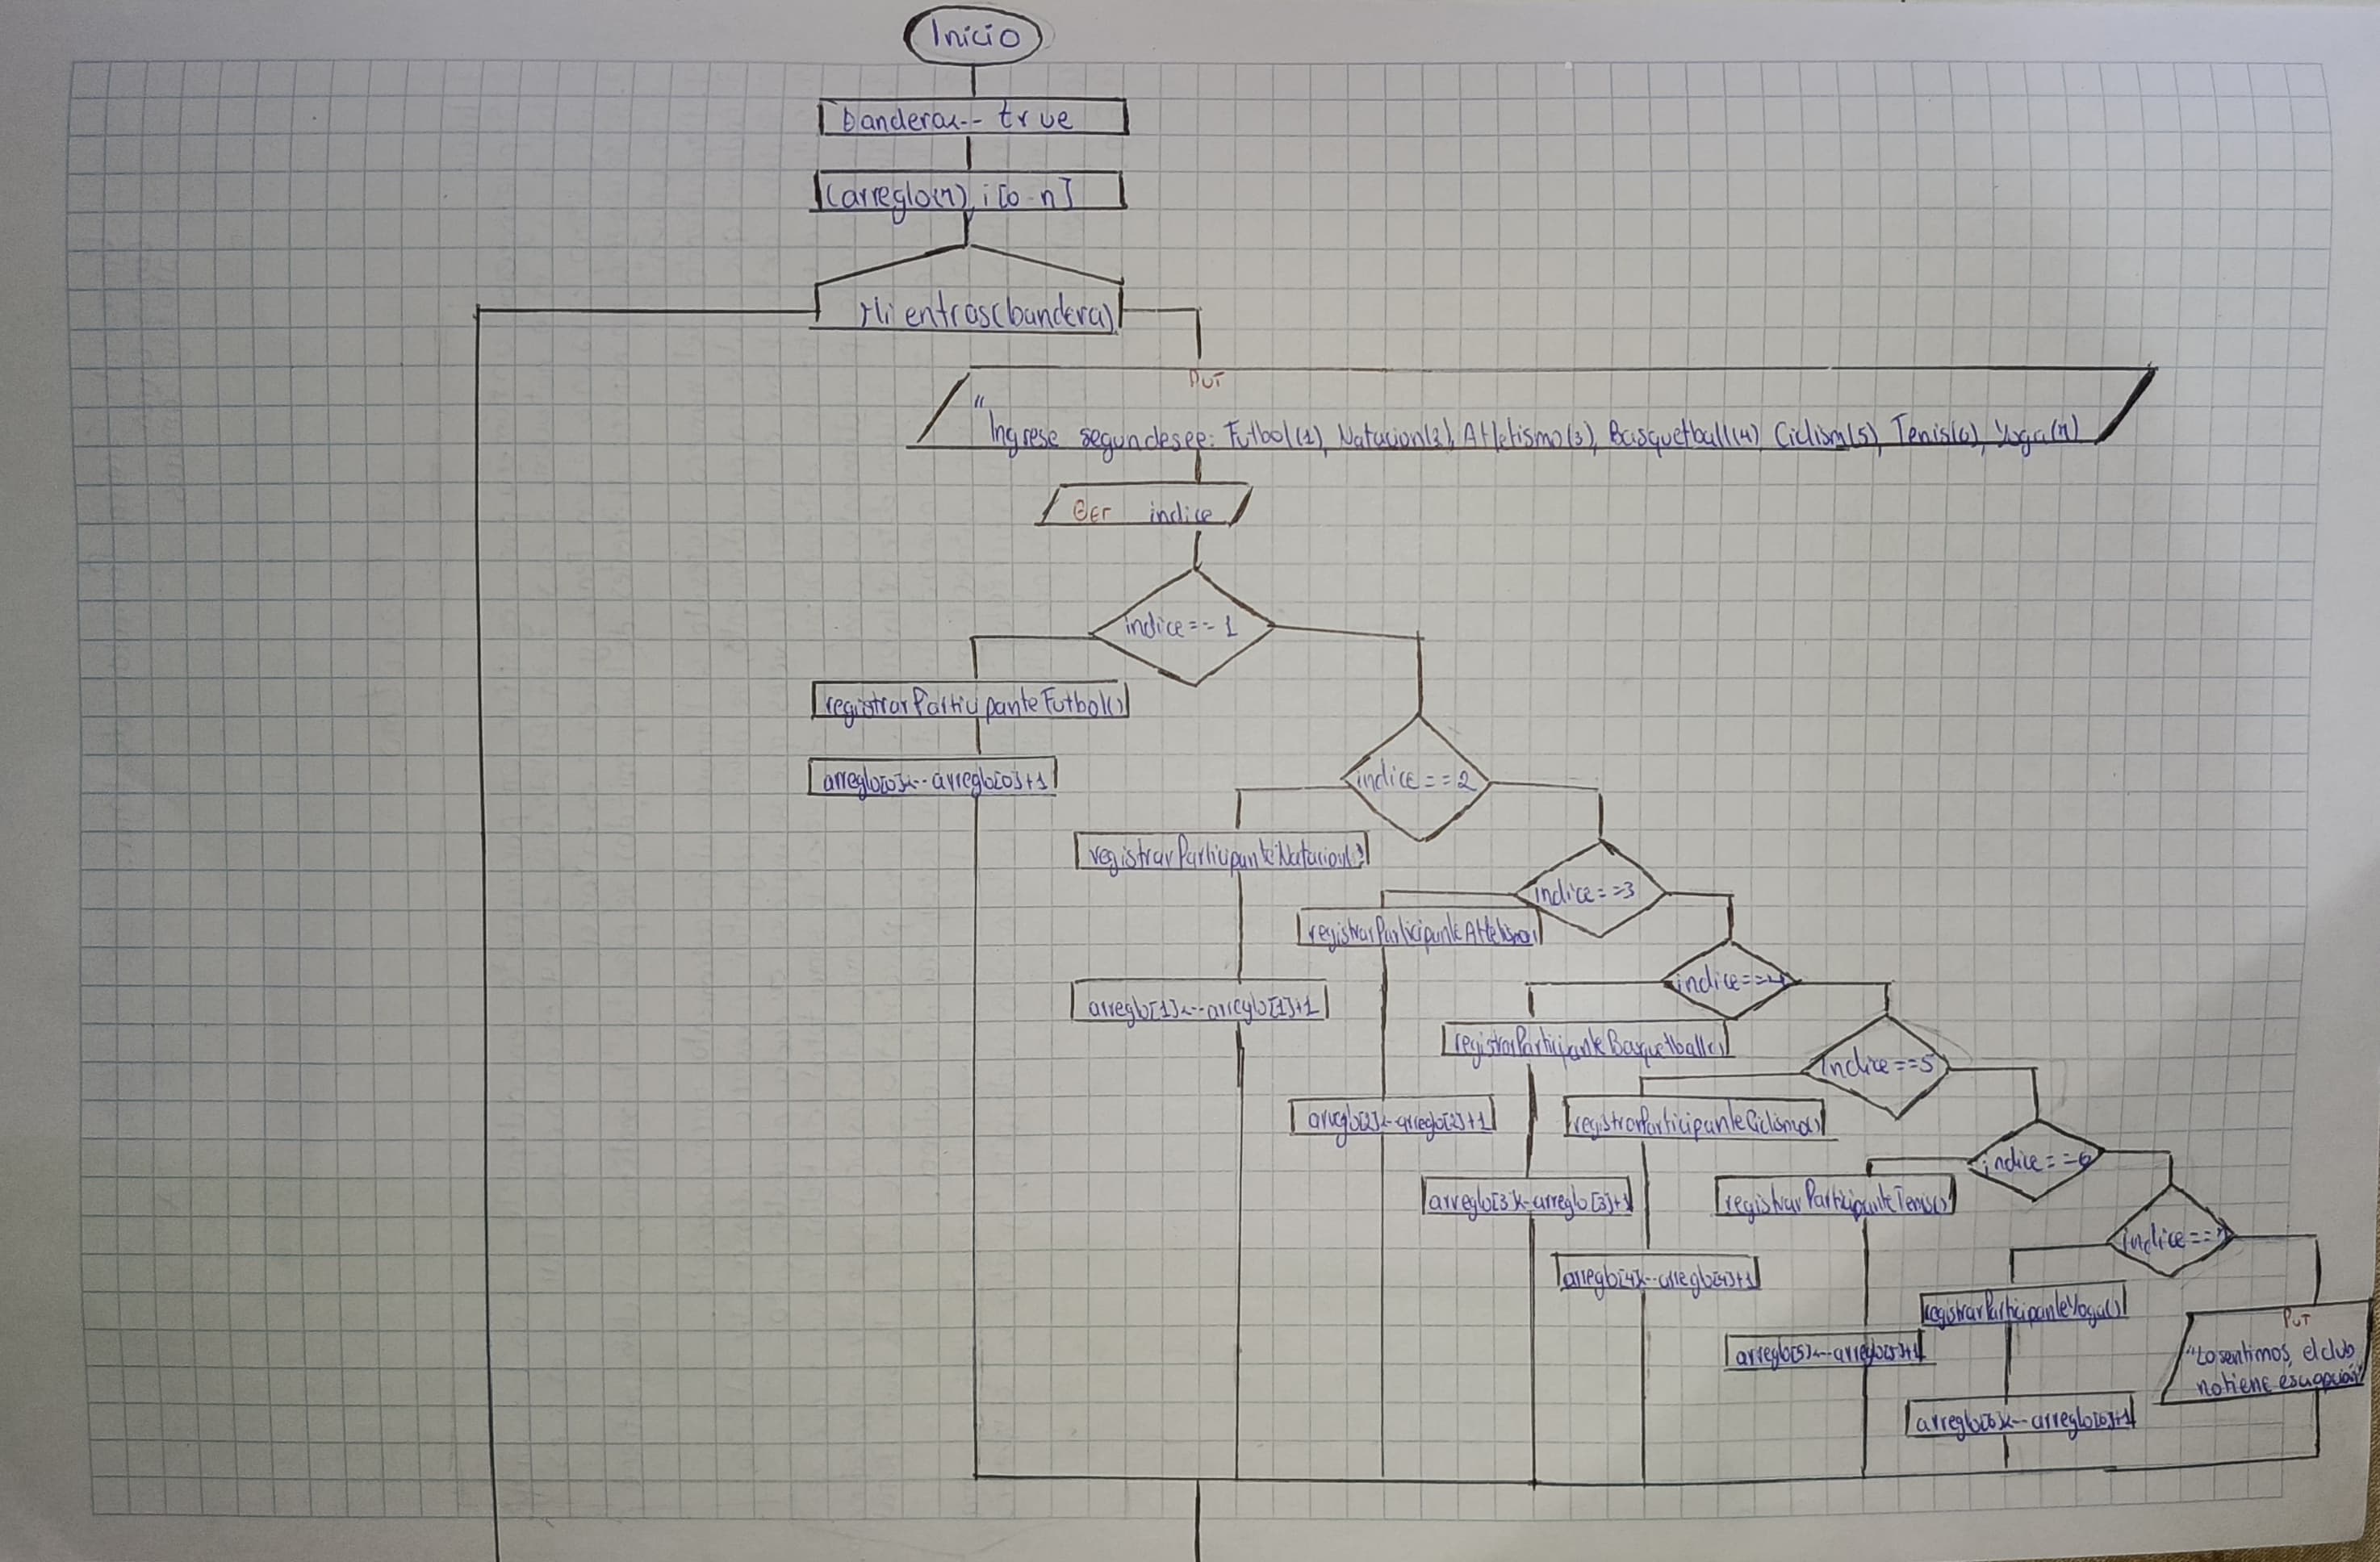 Inicio
bandera<-- true
(arreglo(7), i[0-n]
Mientras(bandera)
PUT
"Ingrese segun desee: Futbol(1), Natacion(2), Atletismo(3), Basquetball(4), Ciclism(5), Tenis(6), Yoga(7)
GET indice
indice==1
registrarParticipanteFutbol()
arreglo[0]<--arreglo[0]+1
indice==2
registrarParticipanteNatacion()
indice==3
registrarParticipanteAtletismo()
arreglo[1]<--arreglo[1]+1
indice==4
registrarParticipanteBasquetball()
indice==5
arreglo[2]<-arreglo[2]+1
registrarParticipanteCiclismo()
indice==6
arreglo[3]<-arreglo[3]+1
registrarParticipanteTenis()
indice==7
arreglo[4]<--arreglo[4]+1
registrarParticipanteYoga()
arreglo[5]<--arreglo[5]+1
PUT
"Lo sentimos, el club
no tiene esa opción"
arreglo[6]<--arreglo[6]+1